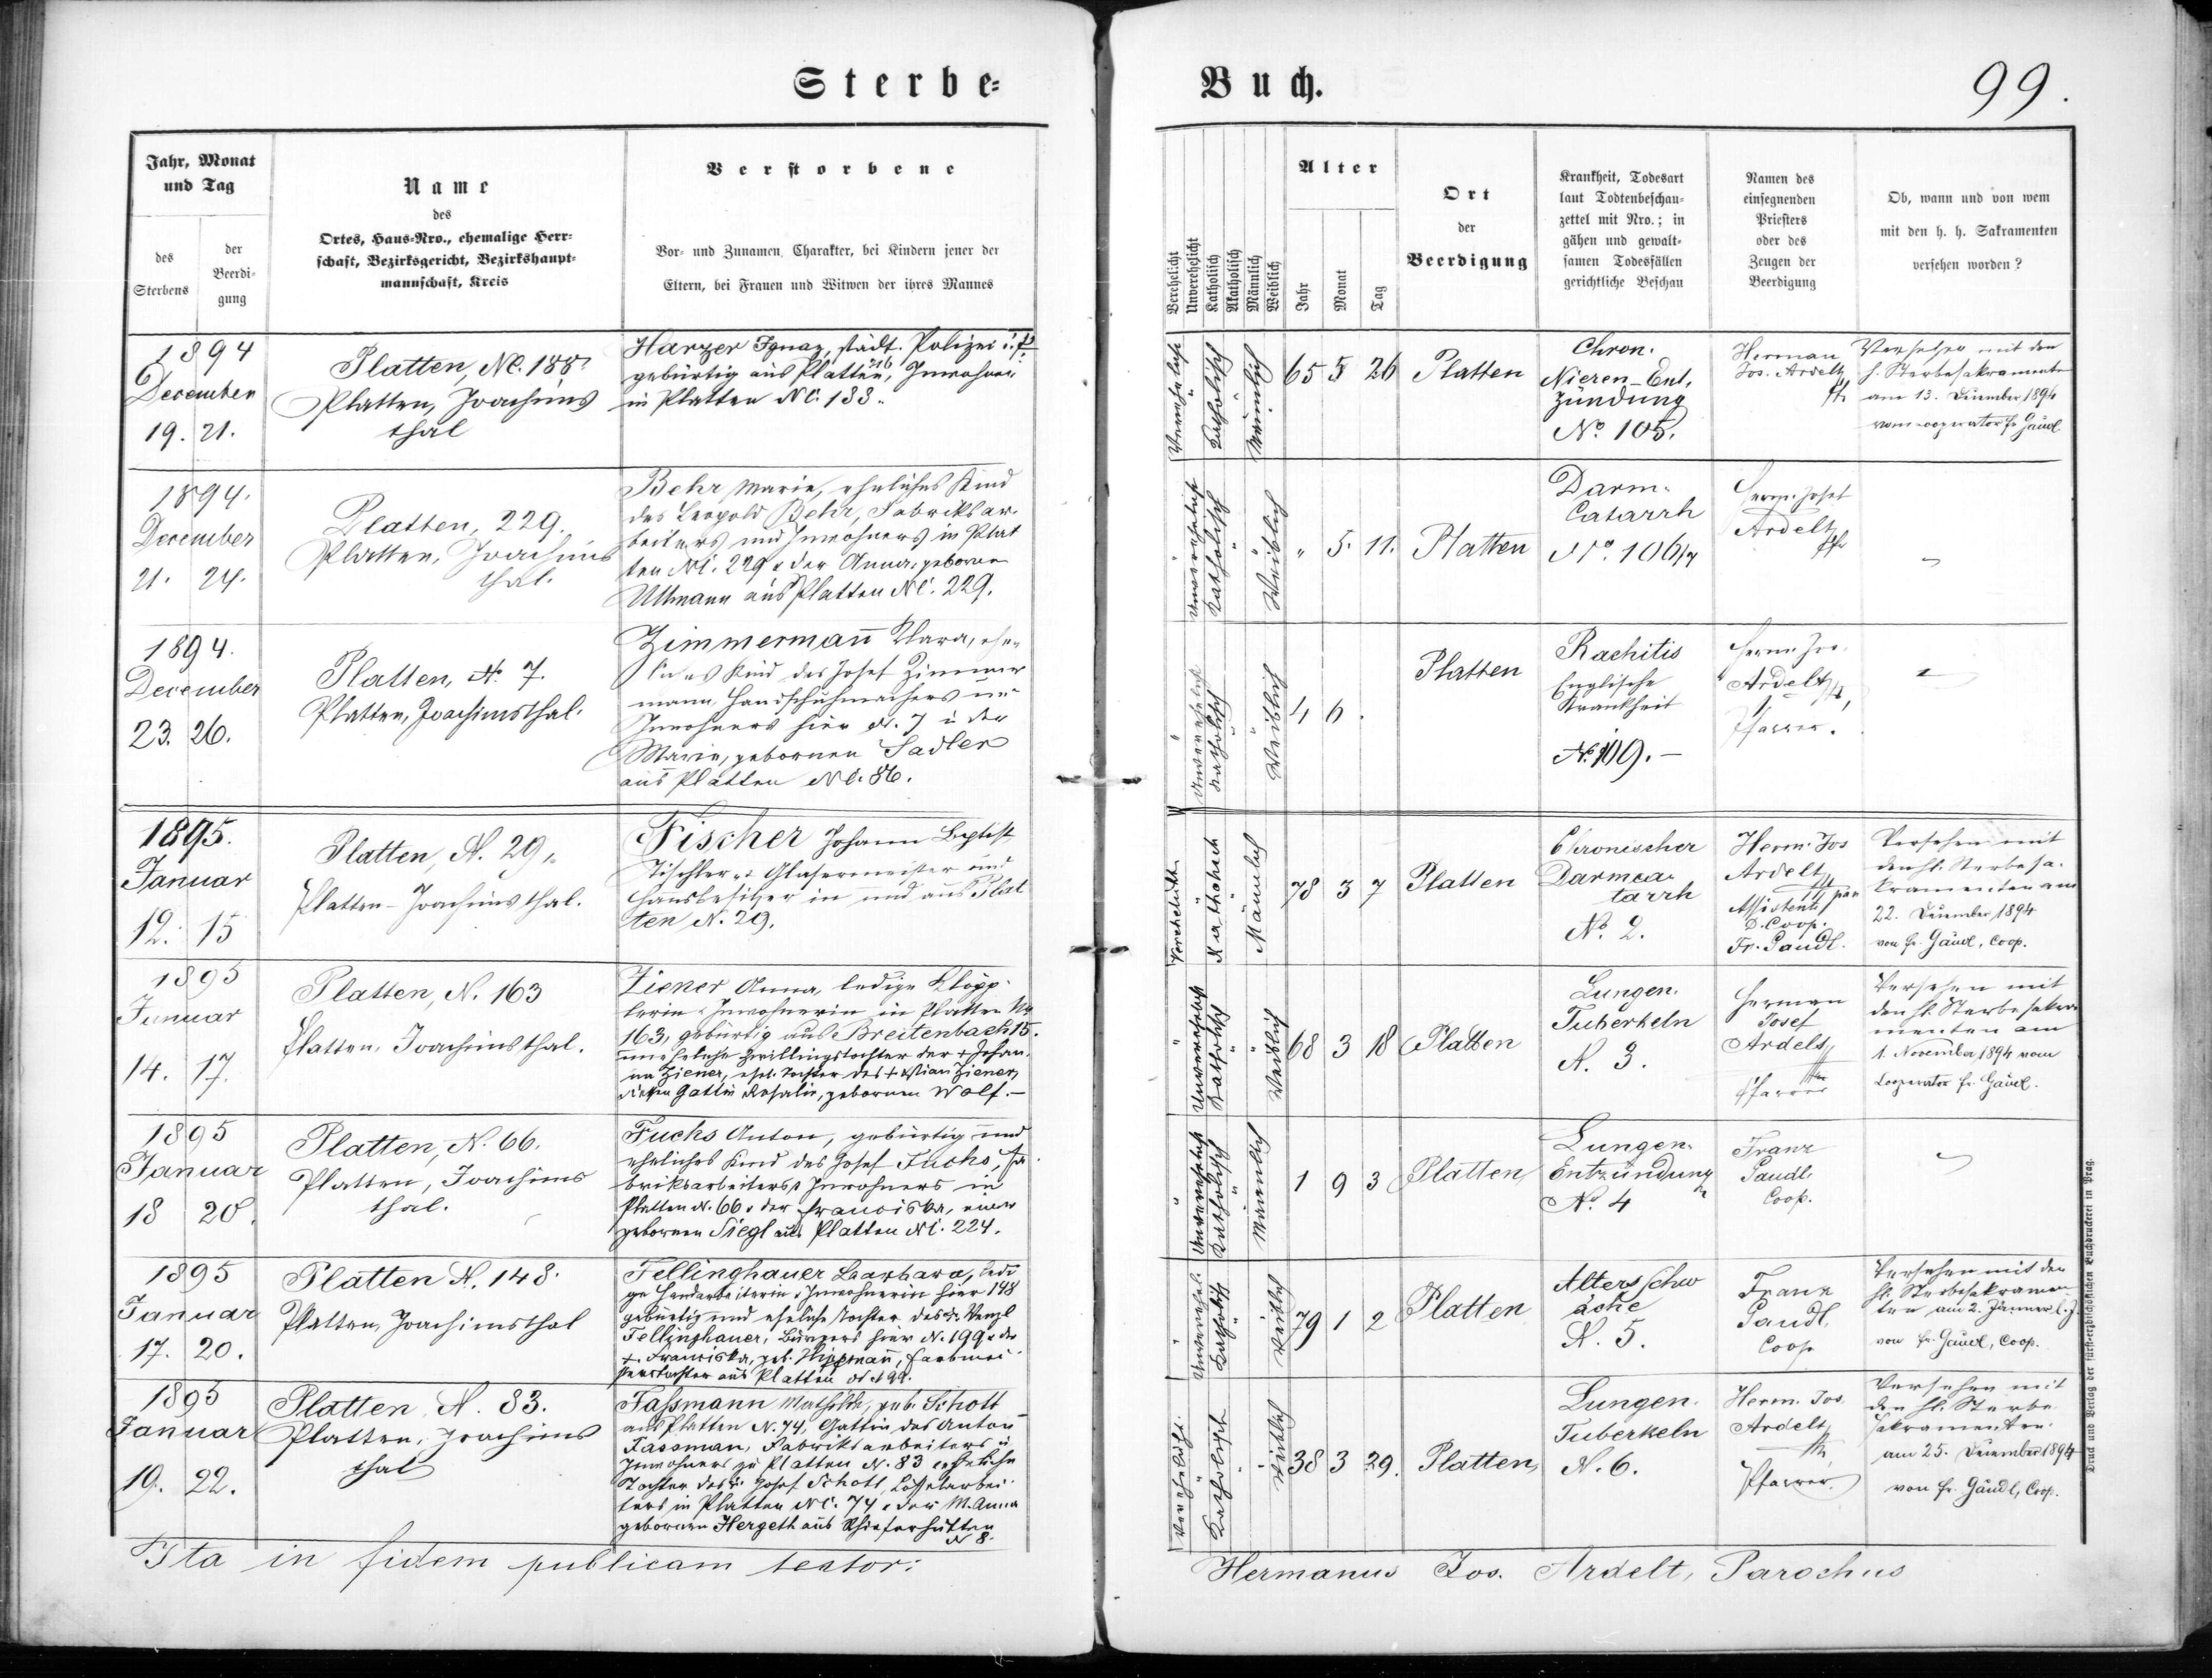 Sterbe=
Buch.
99.
Jahr, Monat
und Tag
des
Sterbens
der
Beerdi=
gung
Name
des
Ortes, Haus=Nro., ehemalige Herr=
schaft, Bezirksgericht, Bezirkshaupt=
mannschaft, Kreis
Verstorbene
Vor= und Zunamen, Charakter, bei Kindern jener der
Eltern, bei Frauen und Witwen der ihres Mannes
Verehelicht
Unverehelicht
Katholisch
Akatholisch
Männlich
Weiblich
Alter
Jahr
Monat
Tag
Ort
der
Beerdigung
Krankheit, Todesart
laut Todtenbeschau=
zettel mit Nro.; in
gähen und gewalt=
samen Todesfällen
gerichtliche Beschau
Namen des
einsegnenden
Priesters
oder des
Zeugen der
Beerdigung
Ob, wann und von wem
mit den h. h. Sakramenten
versehen worden?
1894
December
19. 21.
Platten, NC. 188
Platten, Joachims
thal
Harzer Ignaz, städt. Polizei
gebürtig aus Platten, Inwohner
in Platten NC. 133.
Verehelicht
Katholisch
Männlich
65 5 26
Platten
Chron.
Nieren-Ent,
zündung
No. 105.
Herman
Jos. Ardelt
Versehen mit den
h. Sterbesakramenten
am 13. December 1894
vom cooperator Fr. Gäudl
1894.
December
21. 24.
Platten, 229.
Platten, Joachims
thal.
Behr Marie, eheliches Kind
des Leopold Behr, Fabriksar-
beiters und Inwohners in Plat
ten NC. 229 u der Anna, geborne
Ullmann aus Platten NC. 229.
Unverehelicht
Katholisch
Weiblich
" 5. 11.
Platten
Darm-
Catarrh
No. 106
Herm. Josef
Ardelt
1894.
December
23. 26.
Platten, N. 7.
Platten, Joachimsthal.
Zimmermann Klara, ehe-
liches Kind des Josef Zimmer
mann, Handschuhmachers und
Inwohners hier N. 7 u der
Marie, gebornen Sadler
aus Platten NC. 86.
Unverehelicht
Katholisch
Weiblich
4 6 .
Platten
Rachitis
Englische
Krankheit
No. 109.-
Herm. Jos.
Ardelt,
Pfarrer.
1895.
Januar
12. 15
Platten, N. 29.
Platten-Joachimsthal.
Fischer Johann Baptist
Tischler u. Glasermeister und
Hausbesitzer in und aus Plat
ten N. 29.
Verehelicht
Katholisch
Männlich
78 3 7
Platten
Chronischer
Darmca-
tarrh
No. 2.
Herm. Jos
Ardelt
Assistent
D. Coop.
Fr. Gaudl.
Versehen mit
den hl. Sterbesa-
kramenten am
22. December 1894
von Fr. Gäudl, Coop.
1895
Januar
14. 17.
Platten, N. 163
Platten, Joachimsthal.
Ziener Anna, ledige Klöpp-
lerin Inwohnerin in Platten No
163, gebürtig aus Breitenbach 15.
uneheliche Zwillingstochter der + Johan-
na Ziener, ehel. Tochter des + Ziener,
dessen Gattin Rosalie, gebornen Wolf.-
Unverehelicht
Katholisch
Weiblich
68 3 18
Platten
Lungen.
Tuberkeln
N. 3.
Herman
Josef
Ardelt
Pfarrer
Versehen mit
den hl. Sterbesakra
menten am
1. November 1894 vom
Cooperator Fr. Gäudl.
1895
Januar
18 20.
Platten, N. 66.
Platten, Joachims
thal.
Fuchs Anton, gebürtig und
eheliches Kind des Josef Fuchs, Fa
briksarbeiters, Inwohners in
Platten N. 66 u der Franciska, einer
gebornen Siegl aus Platten NC. 224.
Unverehelicht
Katholisch
Männlich
1 9 3
Platten
Lungen-
Entzündung
No. 4
Franz
Gaudl
Coop.
1895
Januar
17. 20.
Platten N. 148.
Platten, Joachimsthal
Fellinghauer Barbara, ledi
ge Handarbeiterin, Inwohnerin hier 148
gebürtig und eheliche Tochter des + Wenzl
Fellinghauer, Bürgers hier N. 199 u der
+ Franciska, geb. Hippmann,
tochter aus Platten N 199.
Unverehel.
Katholisch
Weiblich
79 1 2
Platten
Altersschw
äche
N. 5.
Franz
Gaudl
Coop
Versehen mit den
hl. Sterbesakramen-
ten am 2. Jänner l. J.
von Fr. Gäudl, Coop.
1895
Januar
19. 22.
Platten, N. 83.
Platten, Joachims
thal
Fassmann Mathilde, geb. Schott
aus Platten N. 74, Gattin des Anton
Fassman, Fabriksarbeiters u
Inwohners zu Platten N. 83 eheliche
Tochter des Josef Schott, Löffelarbei-
ters in Platten NC. 74 u der M. Anna
gebornen Hergeth aus Schieferhütten
N 8.
Verehelicht.
Katholisch
Weiblich
38 3 29.
Platten
Lungen.
Tuberkeln
N. 6.
Herm. Jos.
Ardelt
Pfarrer
Versehen mit
den hl. Sterbe
sakramenten
am 25. December 1894
von Fr. Gäudl, Coop.
Ita in fidem publicam testor:
Hermanus Jos. Ardelt, Parochus
Druck und Verlag der fürst=erzbischöflichen Buchdruckerei in Prag.